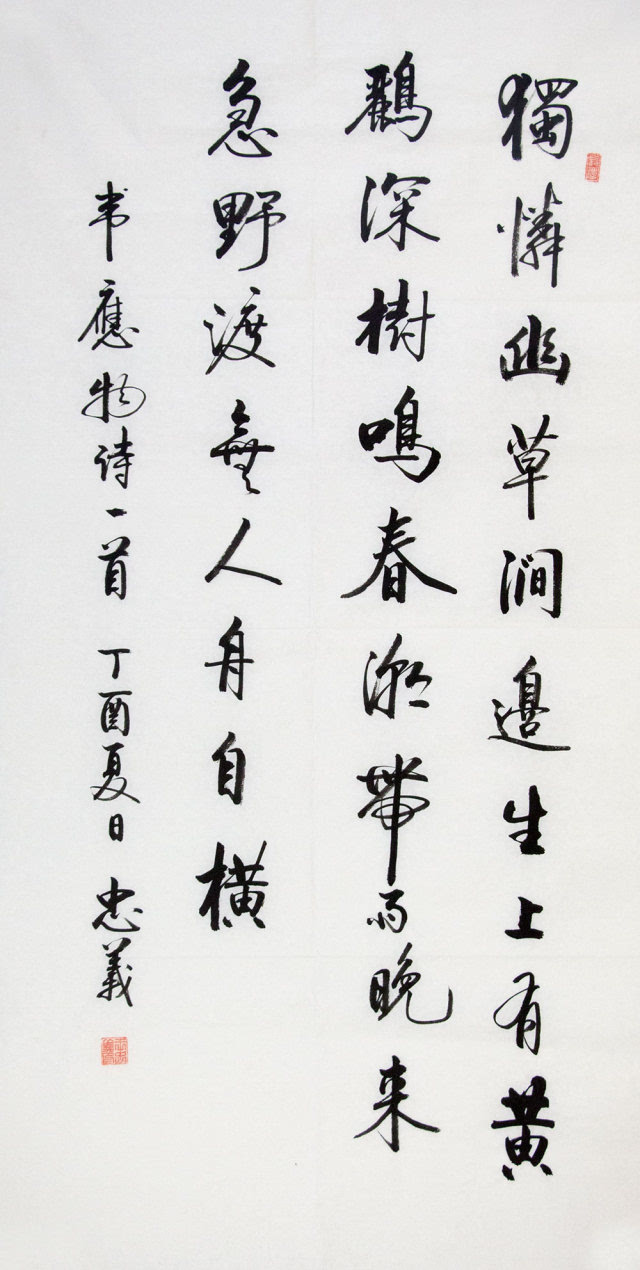 獨憐幽草澗邊生上有黄
鸝深樹鳴春潮帶雨晚来
急野渡無人舟自横
韦應物诗一首 丁酉夏日 忠義